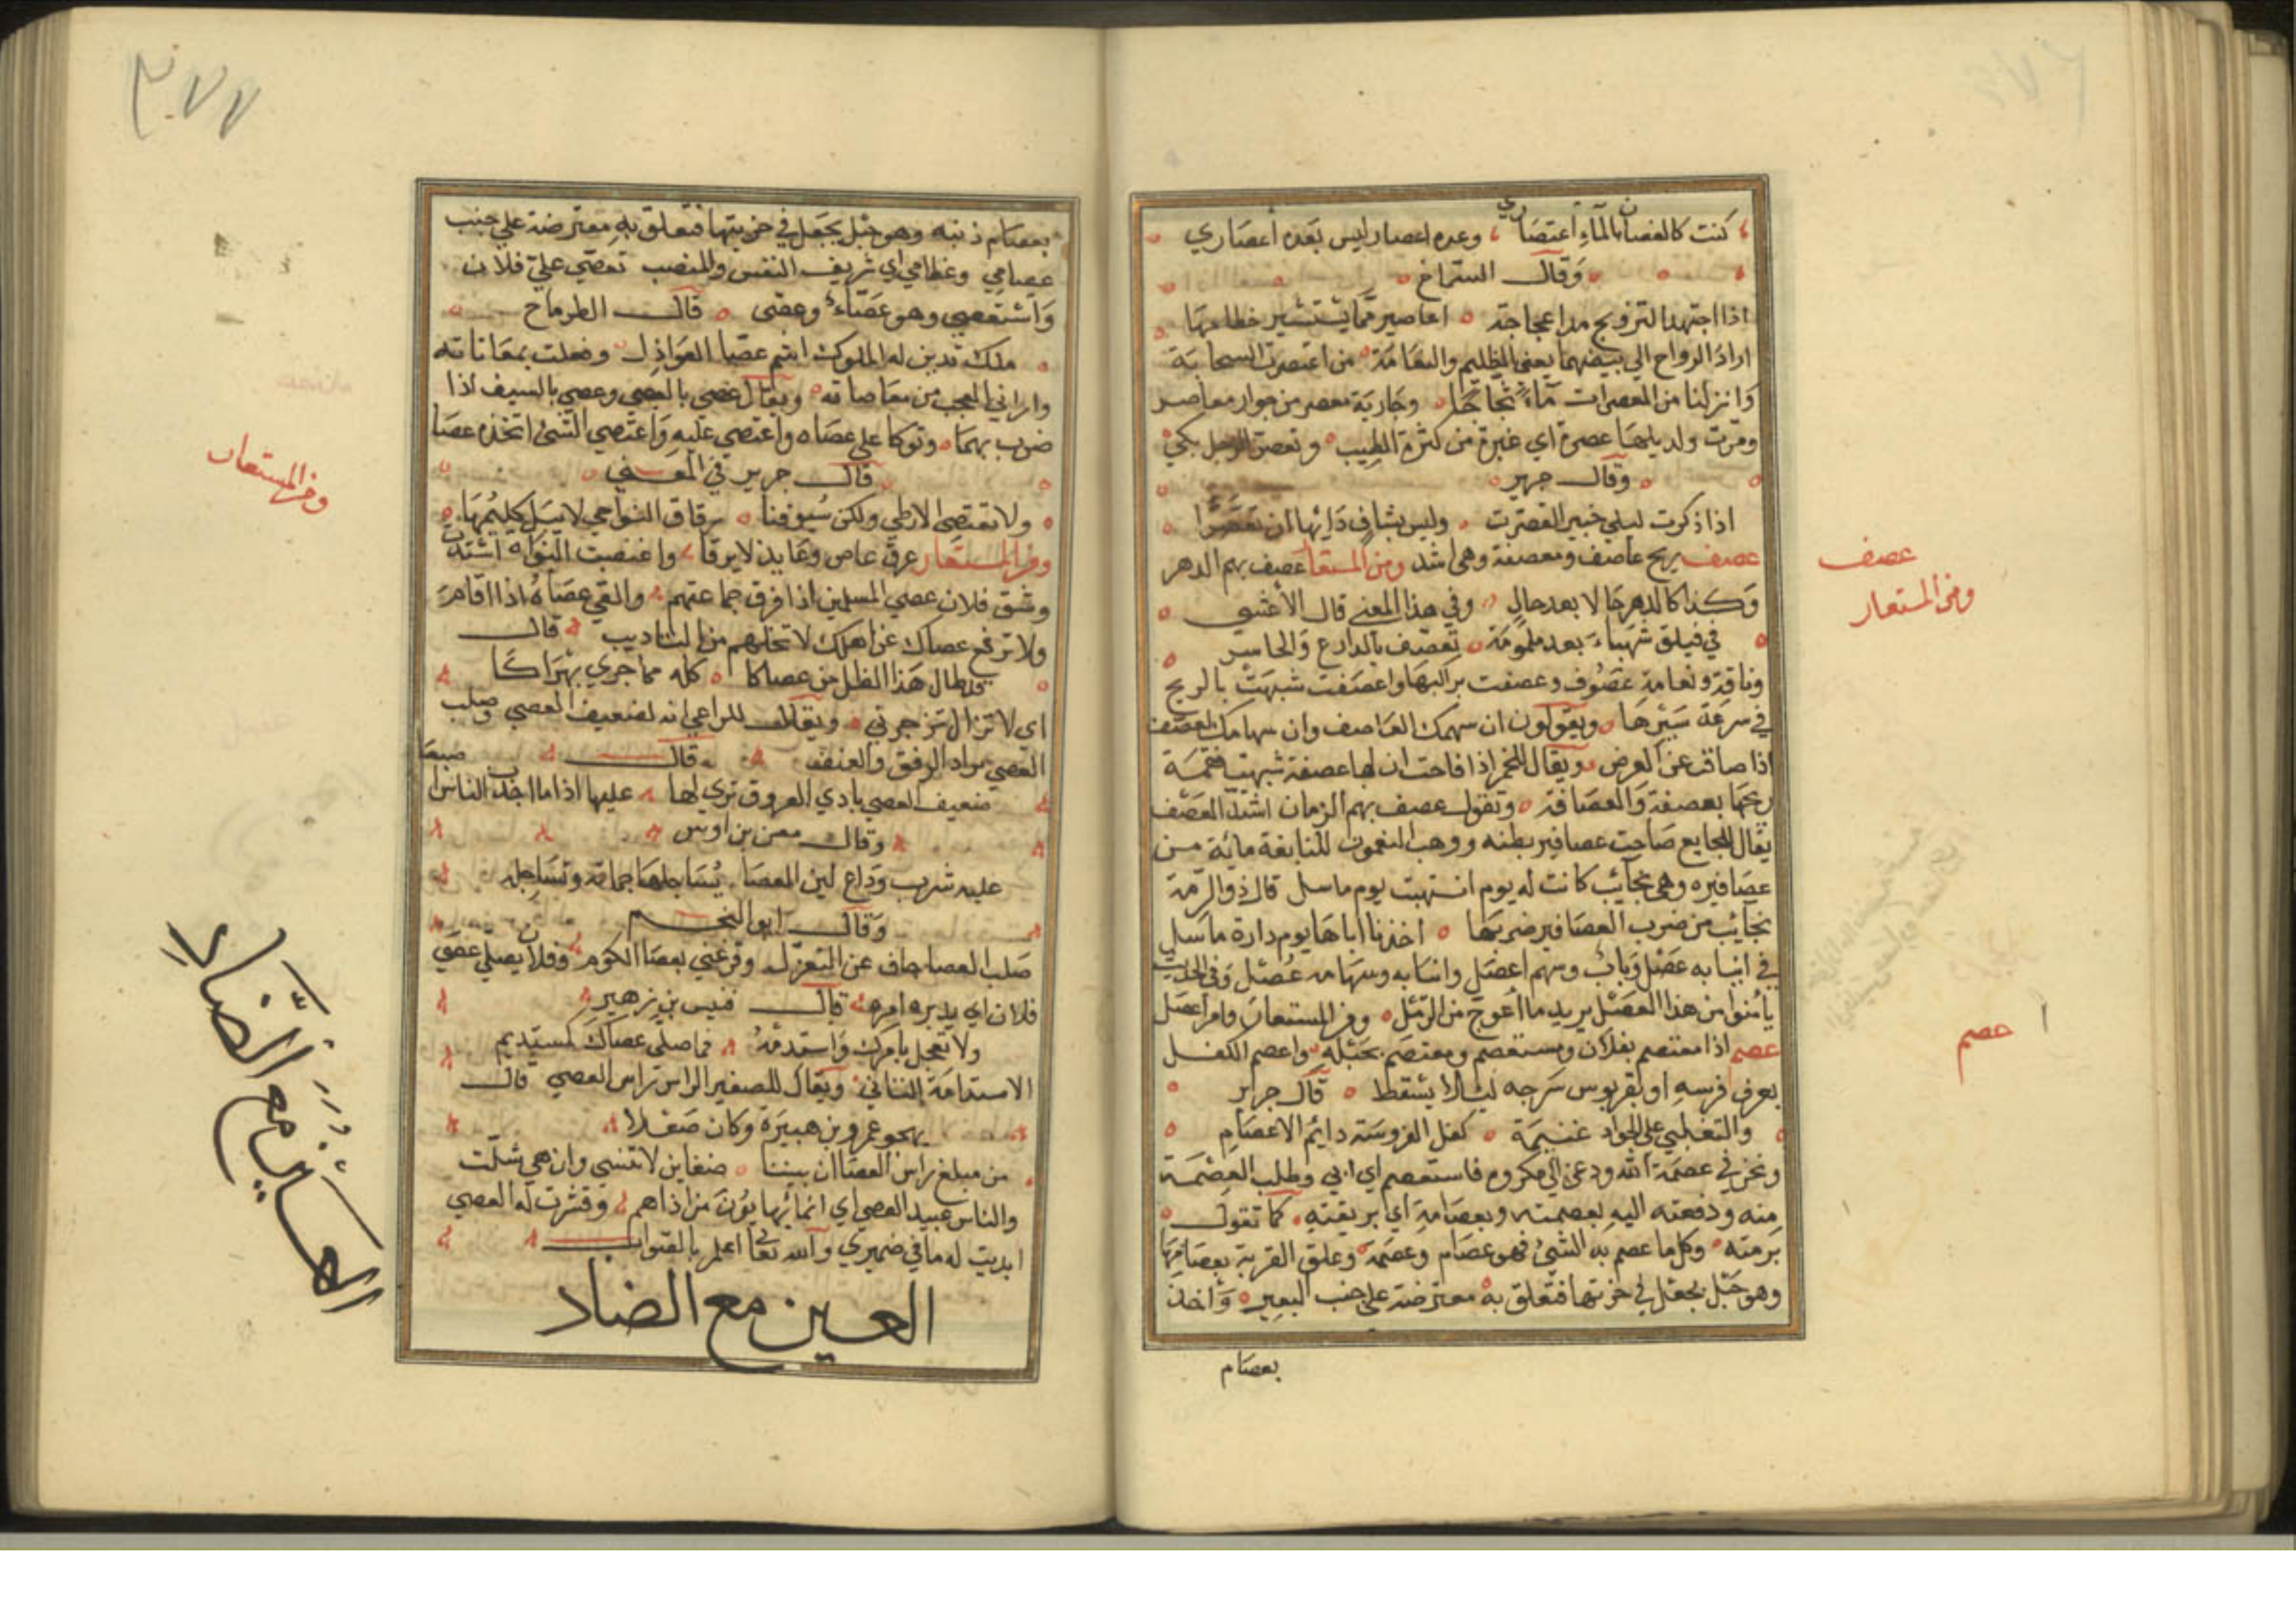 كنت كالغصان بالماء اعتصاري وعده اعصار ليس بعده أعصاري
وقال الشماخ
اذا اجتهدا الترويح مدا عجاجة اعاصير مما يستثير خطاهما
اراد الرواح الى بيضهما يعني الظليم والنعامة من اعتصرت السحابة
وانزلنا من المعصرات ماء ثجاجا وجارية معصر من جوار معاصر
ومرت ولذيلها عصرة اي غبرة من كثرة الطيب وتعصر الرجل بكي
وقال جرير
اذا ذكرت ليلى خبير تعصرت وليس بشاف دائها ان تعصرا
عصف ريح عاصف ومعصفة وهي اشد ومن المستعار عصف بهم الدهر
وكذا كالدهر حالا بعد حال وفي هذا المعنى قال الأعشى
في فيلق شهباء بعد ملمومة تعصف بالدارع والحاسر
وناقة ونعامة عصوف وعصفت براكبها واعصفت شبهت بالريح
في سرعة سيرها ويقولون ان سهمك العاصف وان سهامك لعصف
اذا صاف عن الغرض ويقال للخمر اذا فاحت ان لها عصفة شبهت فغمة
ريحها بعصفة والعصافة وتقول عصف بهم الزمان اشد العصف
يقال للجايع صاحت عصافير بطنه ووهب النعمون للنابغة مائة من
عصافيره وهي نجائب كانت له يوم انتهبت يوم ماسل قال ذو الرمة
نجائب من ضرب العصافير ضربها اخذنا اباها يوم دارة ماسل
في انيابه عصل وناب وسهم اعصل وانيابه وسهامه عصل وفي الحديث
يامنوا من هذا العصل يريد ما اعوج من الرمل ومن المستعار وامر اعصل
عصم اذا معتصم بفلان ومستعصم ومعتصم بحبله واعصم الكفل
بعرف فرسه او بقربوس سرجه ليلا يسقط قال جرير
والتغلبي على الجواد غنيمة كفل الفروسة دايم الاعصام
ونحن في عصمة الله ودعى الى مكروه فاستعصم اي ابي وطلب العصمة
منه ودفعته اليه بعصمته وبعصامه اي بربقته كما تقول
برمته وكل ما عصم به الشئ فهو عصام وعصمة وعلق القربة بعصامها
وهو حبل يجعل في خربتها فتعلق به معترضة على جنب البعير واخذ
بعصام
عصف
ومن المستعار
عصم
٣٧٧
بعصام ذنبه وهو حبل يجعل في خربتها فتعلق به معترضة على جنب
عصامي وعظامي اي شريف النفس والمنصب تعصى علي فلان
واستعصى وهو عصاء وعصى قال الطرماح
ملك تدين له الملوك اشم عصا العواذل وفعلت بمعاناته
واراني العجب من معاصاته ويقال عصي بالعصى وعصى بالسيف اذا
ضرب بهما وتوكا على عصاه واعتصى عليه واعتصى الشئ اتخذه عصا
قال جرير في المعنى
ولا تعتصى الارطى ولكن سيوفنا رقاق النواحي لا يبل كليمها
ومن المستعار عرق عاص وعايذ لا يرقا واعتصت النواة اشتدت
وشق فلان عصى المسلمين اذا فرق جماعتهم والقى عصاه اذا اقام
ولا ترفع عصاك عن اهلك لا تخلهم من التاديب قال
قد طال هذا الظل من عصاكا كله مما جرى بهراكا
اي لا تزال تزجرني ويقال للراعي انه لضعيف العصى وصلب
العصى يراد الرفق والعنف قال
ضعيف العصى بادي العروق ترى لها عليها اذا ما اجدب الناس اصبعا
وقال معن بن اوس
عليه شريب وداع لين العصا يساجلها جماته وتساجله
وقال ابو النجم
صلب العصا جاف عن التغزل وقرعني بعصا اللوم وفلان يصلي عصى
فلان اي يدبر امره قال قيس بن زهير
ولا تعجل بامرك واستدمه فما صلى عصاك كمستديم
الاستدامة التاني ويقال للصغير الراس راس العصى قال
يهجو عمرو بن هبيرة وكان صعلا
من مبلغ راس العصا ان بيننا ضغاين لا تنسى وان هي شلت
والناس عبيد العصى اي انما يهابون من اذاهم وقشرت له العصى
ابديت له ما في ضميري والله تعالى اعلم بالصواب
العين مع الضاد
ومن المستعار
العين مع الضاد